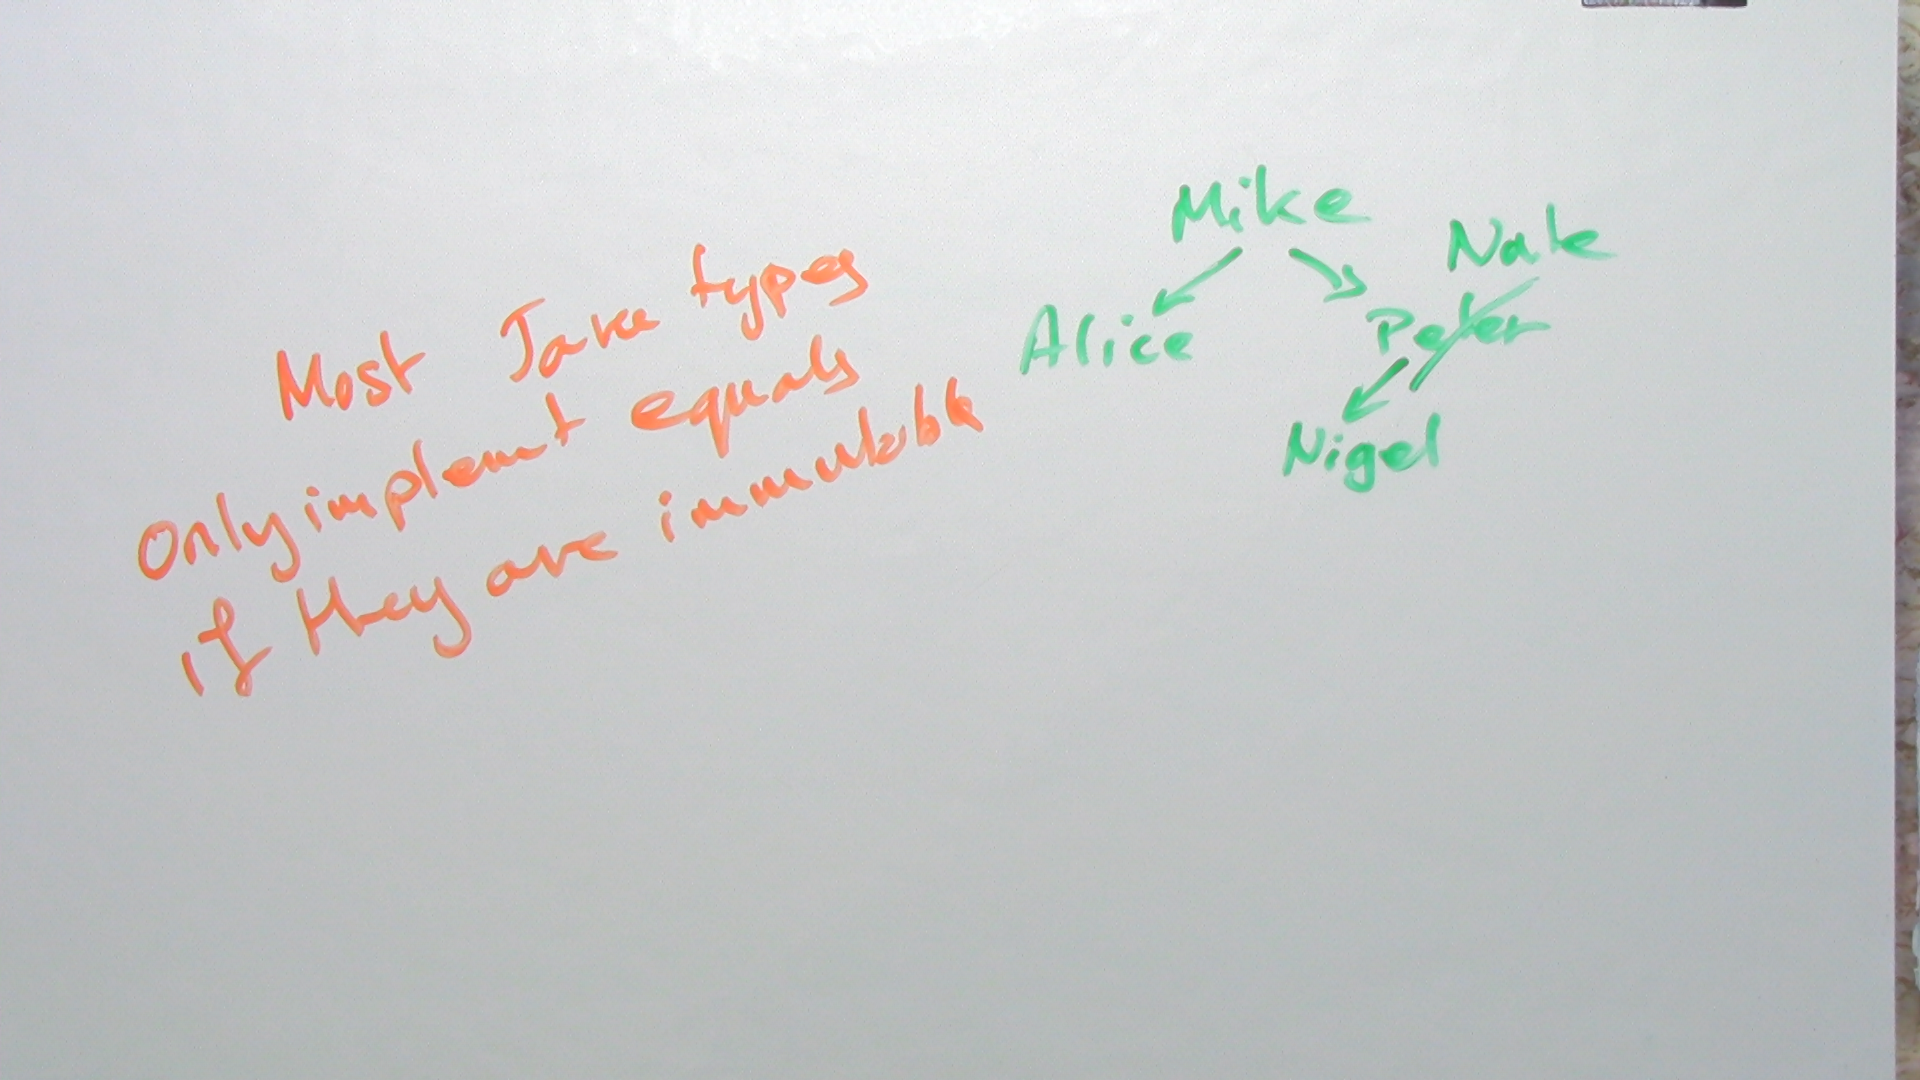 Most Java types
only implement equals
if they are immutable
Mike
Nate
Alice
Peter
Nigel